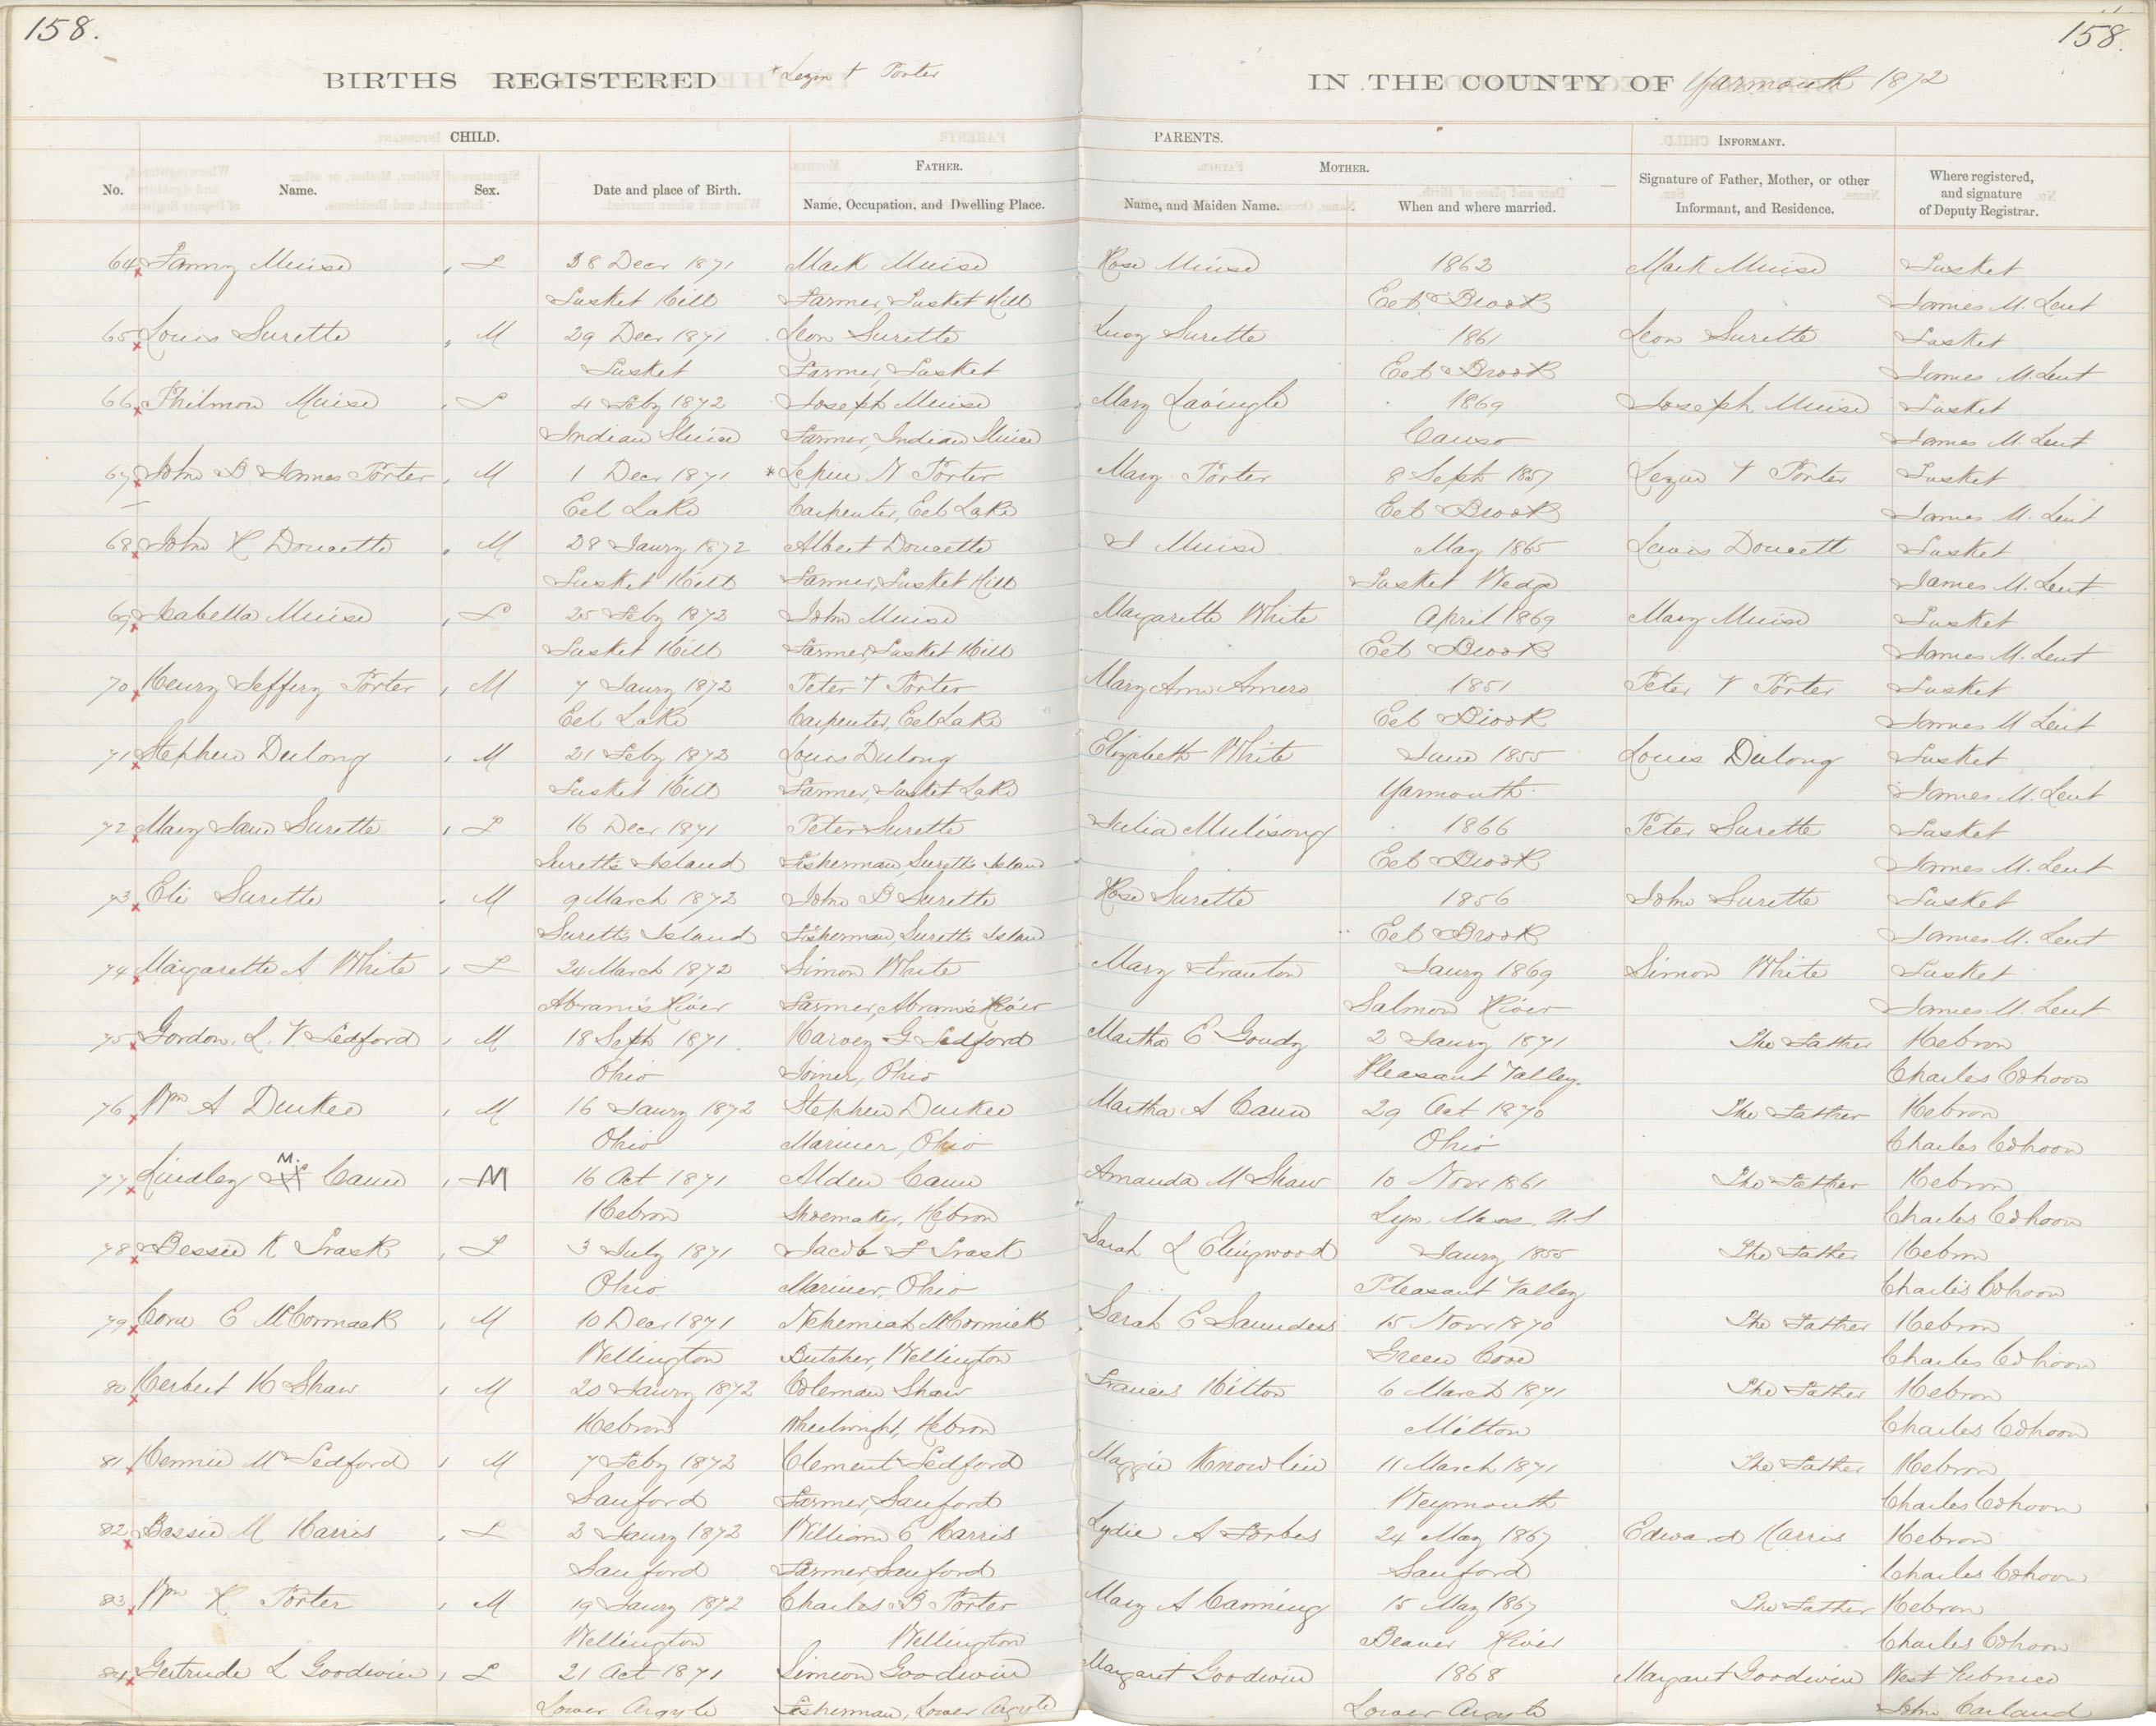 158.
158.
BIRTHS REGISTERED * Lezin t Porter IN THE COUNTY OF Yarmouth 1872
CHILD. PARENTS. INFORMANT.
FATHER. MOTHER.
No. Name. Sex. Date and place of Birth. Name, Occupation, and Dwelling Place. Name, and Maiden Name. When and where married. Signature of Father, Mother, or other Informant, and Residence. Where registered, and signature of Deputy Registrar.
64 Fanny Muise F 28 Decr 1871 Mark Muise Rose Muise 1862 Mark Muise Tusket
Tusket Hill Farmer, Tusket Hill Eel Brook James M. Lent
65 Louis Surette M 29 Decr 1871 Leon Surette Lucy Surette 1861 Leon Surette Tusket
Tusket Farmer, Tusket Eel Brook James M. Lent
66 Philmon Muise F 4 Feby 1872 Joseph Muise Mary 1869 Joseph Muise Tusket
Indian Sluice Farmer, Indian Sluice Canso James M. Lent
67 John B James Porter M 1 Decr 1871 * Lepin V Porter Mary Porter 8 Sept 1857 Lezin V Porter Tusket
Eel Lake Carpenter, Eel Lake Eel Brook James M. Lent
68 John H Doucette M 28 Jaury 1872 Albert Doucette I Muise May 1865 Lewis Doucett Tusket
Tusket Hill Farmer, Tusket Hill Tusket Wedge James M. Lent
69 Isabella Muise F 25 Feby 1872 John Muise Margarette White April 1869 Mary Muise Tusket
Tusket Hill Farmer, Tusket Hill Eel Brook James M. Lent
70 Henry Jeffery Porter M 7 Jaury 1872 Peter V Porter Mary Ann Amero 1851 Peter V Porter Tusket
Eel Lake Carpenter, Eel Lake Eel Brook James M Lent
71 Stephen Dulong M 21 Feby 1872 Louis Dulong Elizabeth White June 1855 Louis Dulong Tusket
Tusket Hill Farmer, Tusket Lake Yarmouth James M. Lent
72 Mary Jane Surette F 16 Decr 1871 Peter Surette Julia 1866 Peter Surette Tusket
Suretts Island Fisherman, Suretts Island Eel Brook James M. Lent
73 Eli Surette M 9 March 1872 John B Surette Rose Surette 1856 John Surette Tusket
Suretts Island Fisherman, Suretts Island Eel Brook James M. Lent
74 Margarette A White F 24 March 1872 Simon White Mary Jaury 1869 Simon White Tusket
Abrams River Farmer, Abrams River Salmon River James M. Lent
75 Gordon. L. V. Tedford M 18 Sept 1871 Harvey G Tedford Martha E Goudy 2 Jaury 1871 The Father Hebron
Ohio Joiner, Ohio Pleasant Valley. Charles Cohoon
76 Wm A Durkee M 16 Jaury 1872 Stephen Durkee Martha A Cann 29 Oct 1870 The Father Hebron
Ohio Mariner, Ohio Ohio Charles Cohoon
77 Lindley M. Cann M 16 Oct 1871 Alden Cann Amanda M Shaw 10 Novr 1861 The Father Hebron
Hebron Shoemaker, Hebron Lyn. Mass. U.S Charles Cohoon
78 Bessie K Trask F 3 July 1871 Jacob F Trask Sarah L Elingwood Jaury 1855 The Father Hebron
Ohio Mariner, Ohio Pleasant Valley Charles Cohoon
79 Cora E McCormack M 10 Decr 1871 Nehemiah McCormick Sarah E Saunders 15 Novr 1870 The Father Hebron
Wellington Butcher, Wellington Green Cove Charles Cohoon
80 Herbert H Shaw M 20 Jaury 1872 Coleman Shaw Frances Hilton 6 March 1871 The Father Hebron
Hebron Wheelwright, Hebron Milton Charles Cohoon
81 Hennie M Tedford M 7 Feby 1872 Clement Tedford Maggie Knowlin 11 March 1871 The Father Hebron
Sanford Farmer, Sanford Weymouth Charles Cohoon
82 Bessie M Harris F 2 Jaury 1872 William E Harris Lydie A Forbes 24 May 1867 Edward Harris Hebron
Sanford Farmer, Sanford Sanford Charles Cohoon
83 Wm H. Porter M 19 Jaury 1872 Charles B Porter Mary A Canning 15 May 1867 The Father Hebron
Wellington Wellington Beaver River Charles Cohoon
84 Gertrude L Goodwin F 21 Oct 1871 Simeon Goodwin Margaret Goodwin 1868 Margaret Goodwin West Pubnico
Lower Argyle Fisherman, Lower Argyle Lower Argyle John Carland